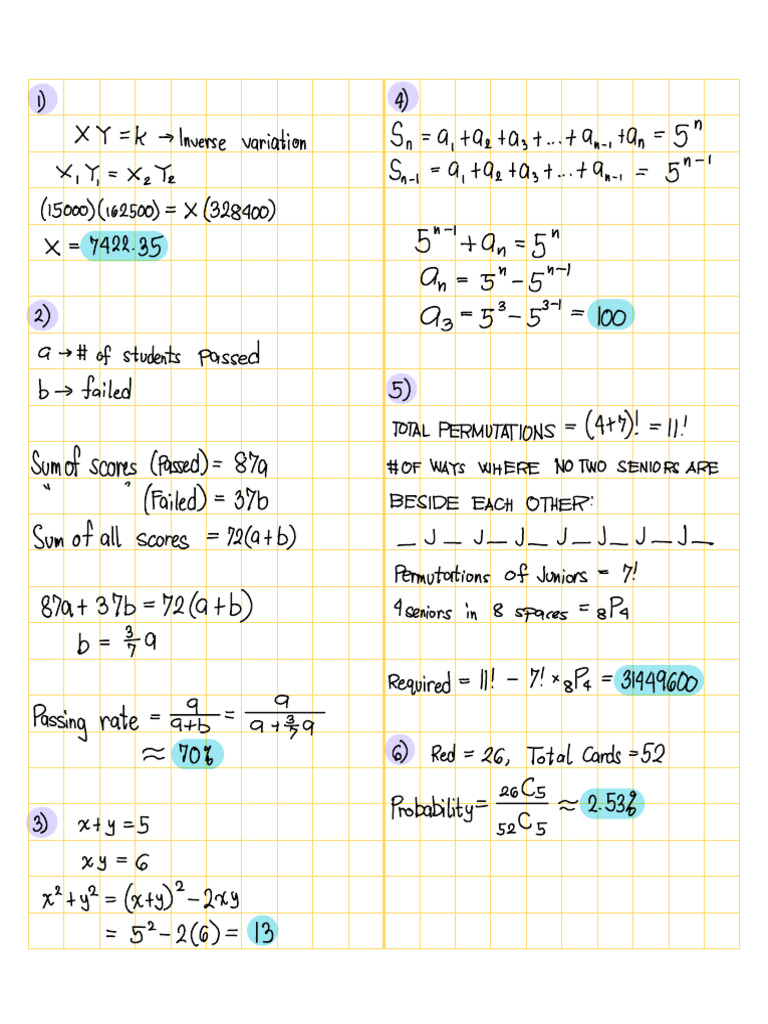 1)
XY = k → Inverse variation
X₁Y₁ = X₂Y₂
(15000)(162500) = X(328400)
X = 7422.35
2)
a → # of students passed
b → failed
Sum of scores (Passed) = 87a
" " (Failed) = 37b
Sum of all scores = 72(a+b)
87a + 37b = 72(a+b)
b = 3/7 a
Passing rate = a/(a+b) = a/(a + 3/7 a)
≈ 70%
3) x+y = 5
xy = 6
x² + y² = (x+y)² - 2xy
= 5² - 2(6) = 13
4)
Sₙ = a₁ + a₂ + a₃ + ... + aₙ₋₁ + aₙ = 5ⁿ
Sₙ₋₁ = a₁ + a₂ + a₃ + ... + aₙ₋₁ = 5ⁿ⁻¹
5ⁿ⁻¹ + aₙ = 5ⁿ
aₙ = 5ⁿ - 5ⁿ⁻¹
a₃ = 5³ - 5³⁻¹ = 100
5)
TOTAL PERMUTATIONS = (4+7)! = 11!
# OF WAYS WHERE NO TWO SENIORS ARE
BESIDE EACH OTHER:
_ J _ J _ J _ J _ J _ J _ J _
Permutations of Juniors = 7!
4 seniors in 8 spaces = ₈P₄
Required = 11! - 7! × ₈P₄ = 31449600
6) Red = 26, Total Cards = 52
Probability = ₂₆C₅/₅₂C₅ ≈ 2.53%